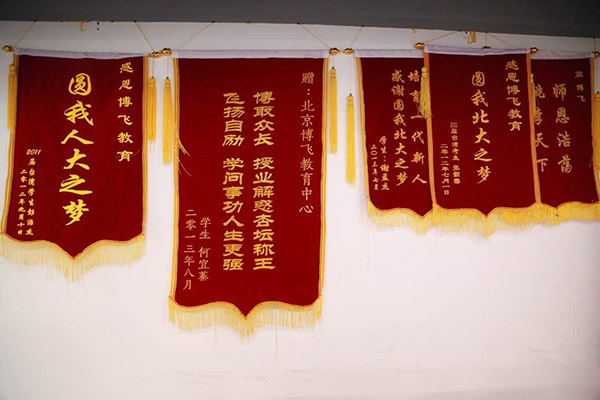 感恩博飞教育
圆我人大之梦
2011届台湾学生
赠：北京博飞教育中心
博取众长 授业解惑杏坛称王
飞扬自励 学问事功人生更强
学生 何宜蓁
二零一三年八月
培育一代新人
感谢圆我北大之梦
学生：谢
感恩博飞教育
圆我北大之梦
届台湾考生
二零一二年七月一日
博飞
师恩浩荡
天下